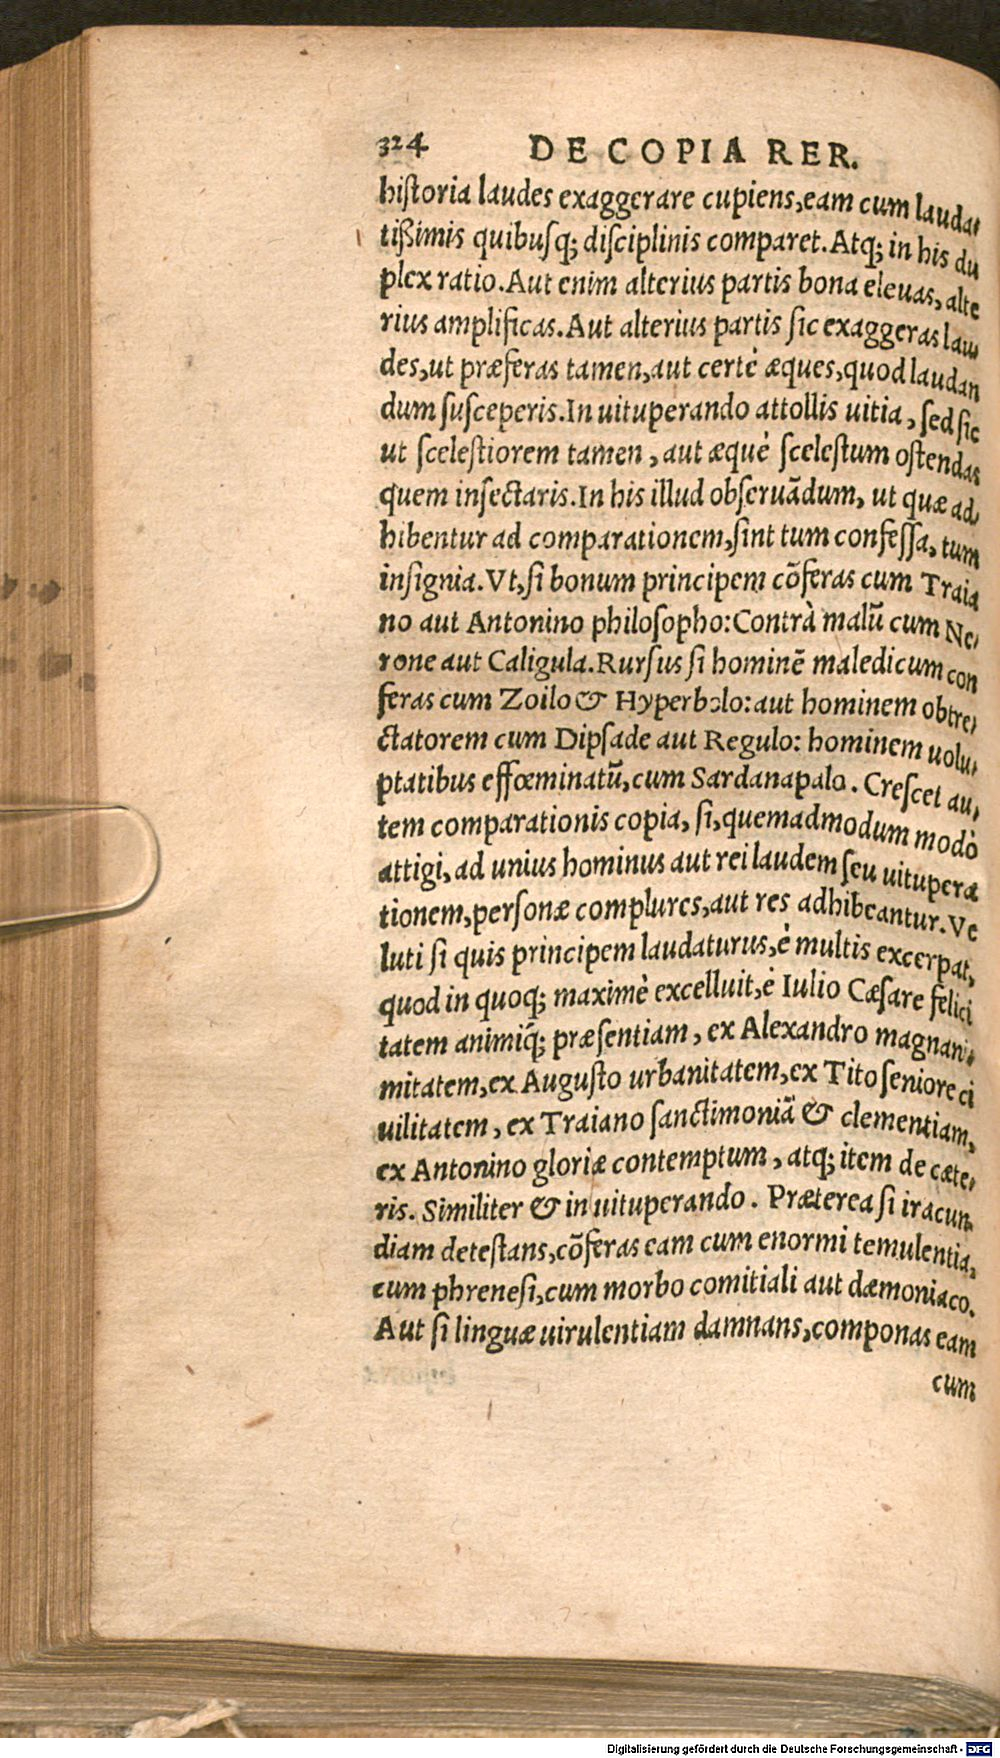 324 DE COPIA RER.
hiſtoria laudes exaggerare cupiens,eam cum lauda⸗
tißimis quibuſq; diſciplinis comparet.Atq; in his du
plex ratio.Aut enim alterius partis bona eleuas, alte
rius amplificas.Aut alterius partis ſic exaggeras lau⸗
des,ut præferas tamen,aut certè æques,quod laudan
dum ſuſceperis.In uituperando attollis uitia, ſed ſic
ut ſceleſtiorem tamen, aut æquè ſceleſtum oſtendas
quem inſectaris.In his illud obſeruādum, ut quæ ad⸗
hibentur ad comparationem,ſint tum confeſſa, tum
inſignia.Vt,ſi bonum principem cōferas cum Traia
no aut Antonino philoſopho:Contrà malū cum Ne⸗
rone aut Caligula.Rurſus ſi hominē maledicum con
feras cum Zoilo & Hyperbolo: aut hominem obtre⸗
ctatorem cum Dipſade aut Regulo: hominem uolu⸗
ptatibus effœminatū,cum Sardanapalo. Creſcet au⸗
tem comparationis copia, ſi,quemadmodum modò
attigi, ad unius hominus aut rei laudem ſeu uitupera
tionem,perſonæ complures,aut res adhibeantur. Ve
luti ſi quis principem laudaturus,è multis excerpat,
quod in quoq; maximè excelluit,è Iulio Cæſare felici
tatem animiq́; præſentiam, ex Alexandro magnani⸗
mitatem,ex Auguſto urbanitatem,ex Tito ſeniore ci
uilitatem, ex Traiano ſanctimoniā & clementiam,
ex Antonino gloriæ contemptum, atq; item de cæte⸗
ris. Similiter & in uituperando. Præterea ſi iracun⸗
diam deteſtans,cōferas eam cum enormi temulentia,
cum phreneſi,cum morbo comitiali aut dæmoniaco.
Aut ſi linguæ uirulentiam damnans,componas eam
cum
Digitalisierung gefördert durch die Deutsche Forschungsgemeinschaft - DFG